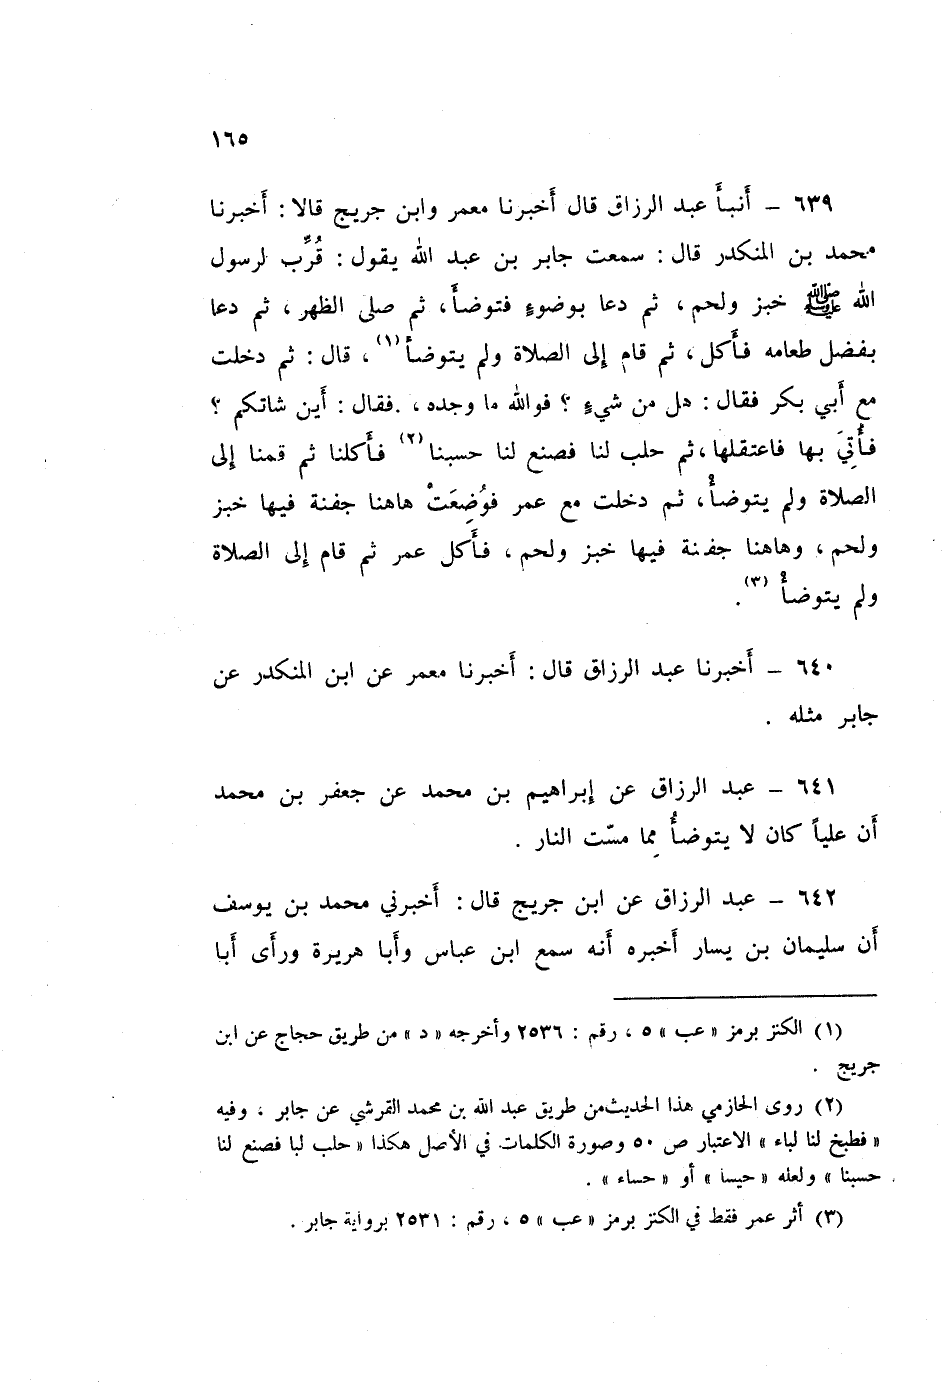 ١٦٥
٦٣٩ ــ أَنبأَ عبد الرزاق قال أَخبرنا معمر وابن جريج قالا : أَخبرنا
محمد بن المنكدر قال : سمعت جابر بن عبد الله يقول : قُرِّب لرسول
الله ﷺ خبز ولحم ، ثم دعا بوضوءٍ فتوضأَ ، ثم صلى الظهر ، ثم دعا
بفضل طعامه فأَكل ، ثم قام إلى الصلاة ولم يتوضأْ (١) ، قال : ثم دخلت
مع أَبي بكر فقال : هل من شيءٍ ؟ فوالله ما وجده ، فقال : أَين شاتكم ؟
فأُتِيَ بها فاعتقلها ، ثم حلب لنا فصنع لنا حسبنا (٢) فأَكلنا ثم قمنا إلى
الصلاة ولم يتوضأْ ، ثم دخلت مع عمر فوُضِعَتْ هاهنا جفنة فيها خبز
ولحم ، وهاهنا جفنة فيها خبز ولحم ، فأَكل عمر ثم قام إلى الصلاة
ولم يتوضأْ (٣) .
٦٤٠ ــ أَخبرنا عبد الرزاق قال : أَخبرنا معمر عن ابن المنكدر عن
جابر مثله .
٦٤١ ــ عبد الرزاق عن إبراهيم بن محمد عن جعفر بن محمد
أَن علياً كان لا يتوضأُ مِما مسّت النار .
٦٤٢ ــ عبد الرزاق عن ابن جريج قال : أَخبرني محمد بن يوسف
أَن سليمان بن يسار أَخبره أَنه سمع ابن عباس وأَبا هريرة ورأَى أَبا
(١) الكنز برمز « عب » ٥ ، رقم : ٢٥٣٦ وأخرجه « د » من طريق حجاج عن ابن
جريج .
(٢) روى الحازمي هذا الحديث من طريق عبد الله بن محمد القرشي عن جابر ، وفيه
« فطبخ لنا لباء » الاعتبار ص ٥٠ وصورة الكلمات في الأصل هكذا « حلب لبا فصنع لنا
حسبنا » ولعله « حيسا » أو « حساء » .
(٣) أثر عمر فقط في الكنز برمز « عب » ٥ ، رقم : ٢٥٣١ برواية جابر .